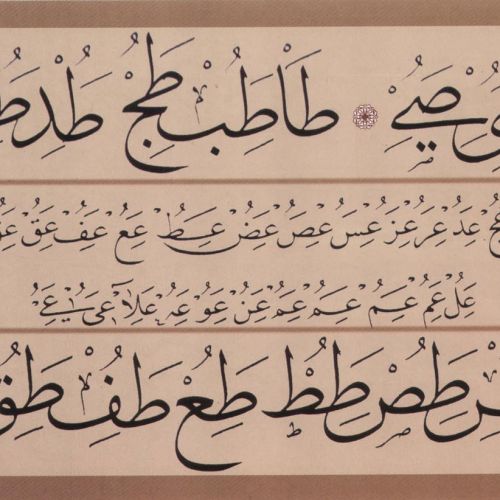 صِے طَا طَبُ طِجُ طِدُ
عِدُ عِرُ عِزُ عِسُ عِصُ عِضُ عِطُ عِعُ عِفُ عِقُ
عِلُ عِمُ عِمُ عِمُ عِمُ عِنُ عِوُ عِهُ عِلاَ عِىُ عِے
طِصُ طِطُ طِعُ طِفُ طِقُ